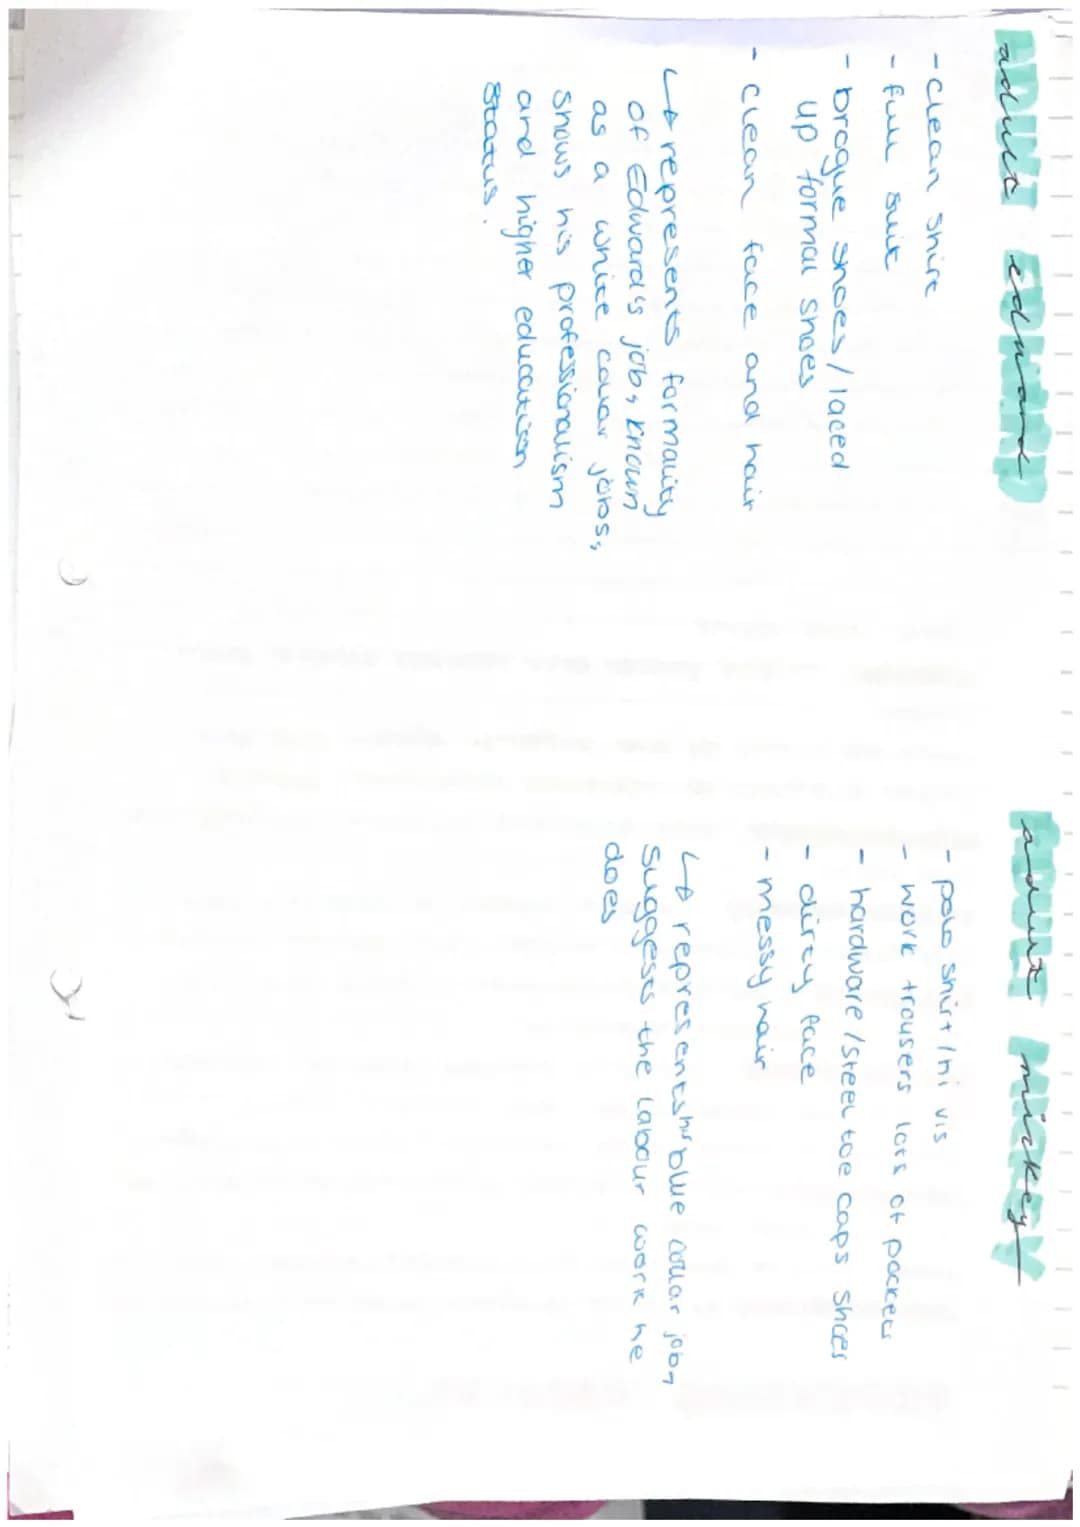 ADULT EDWARD
adult edward
- clean shirt
- full suit
- brogue shoes / laced
up formal shoes
- clean face and hair
↳ represents formality
of Edward's job, known
as a white collar jobs,
shows his professionalism
and higher education
status.
ADULT MICKEY
adult mickey
- polo shirt / hi vis
- work trousers lots of pockets
- hardware / steel toe caps shoes
- dirty face
- messy hair
↳ represents his blue collar job,
suggests the labour work he
does